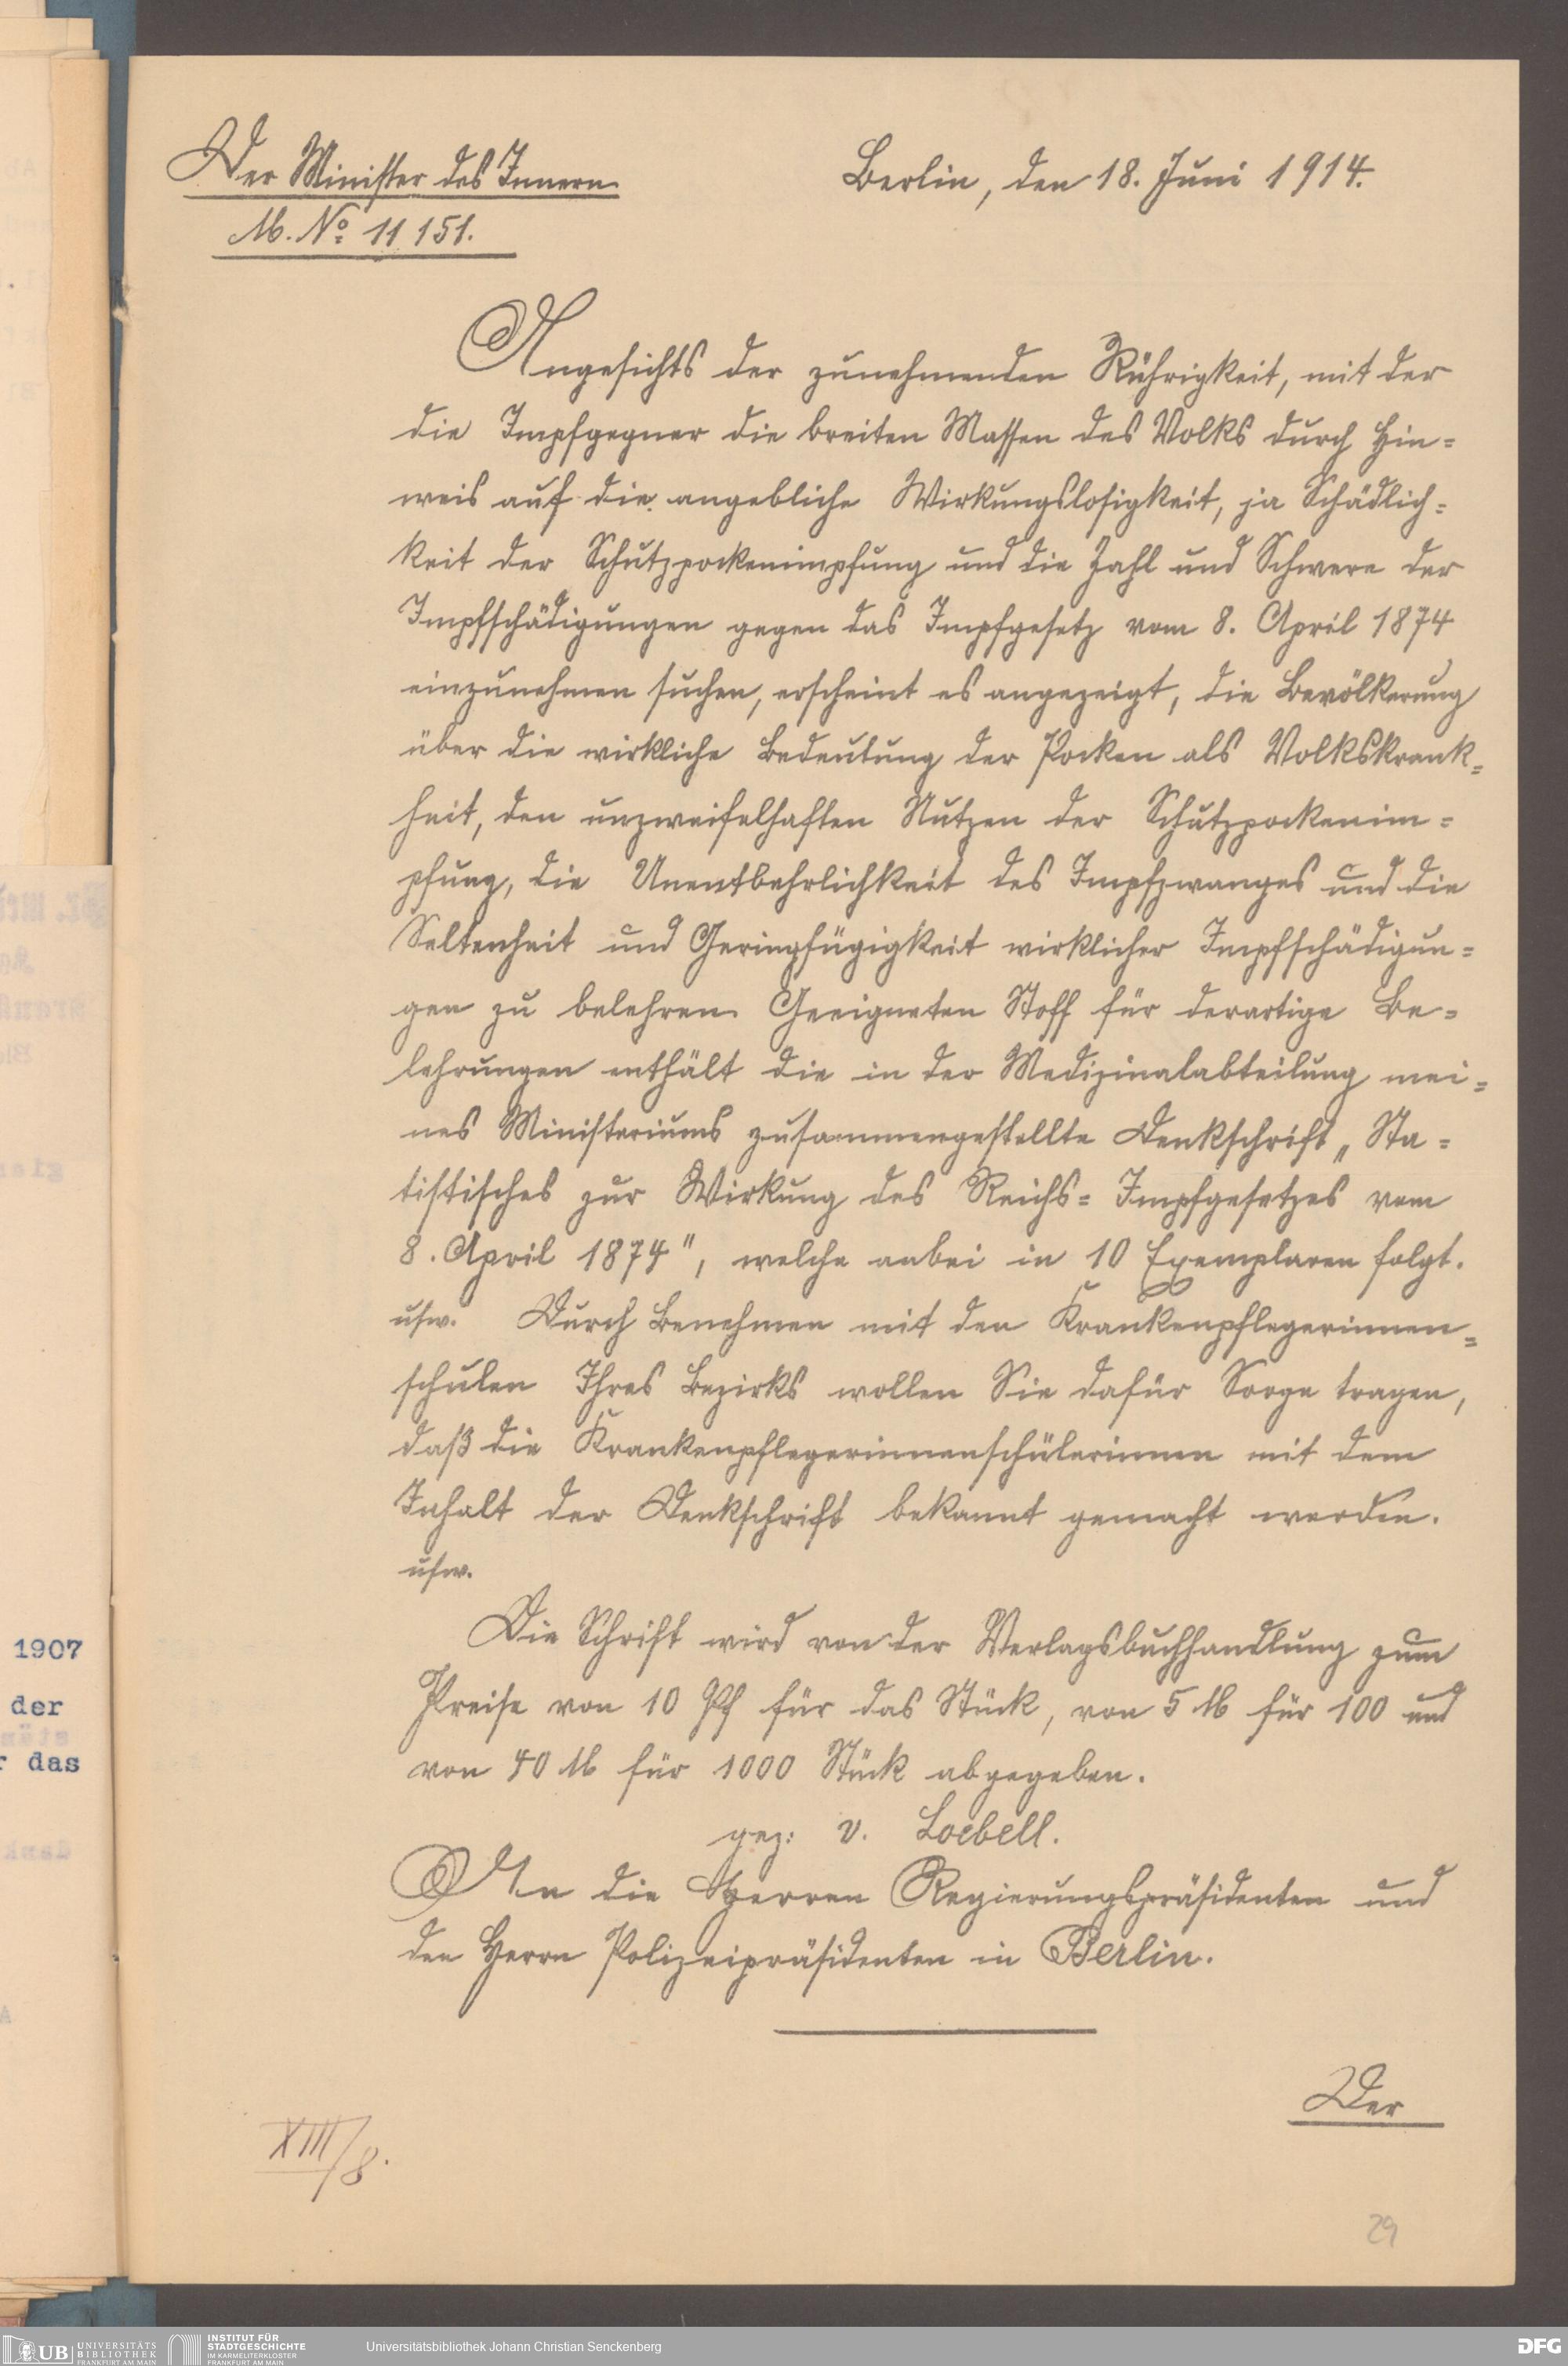 Der Minister des Innern.
M. No 11 151.
Berlin, den 18. Juni 1914.
Angesichts der zunehmenden Rührigkeit, mit der
die Impfgegner die breiten Massen des Volks durch Hin=
weis auf die angebliche Wirkungslosigkeit, ja Schädlich=
keit der Schutzpockenimpfung und die Zahl und Schwere der
Impfschädigungen gegen das Impfgesetz vom 8. April 1874
einzunehmen suchen, erscheint es angezeigt, die Bevölkerung
über die wirkliche Bedeutung der Pocken als Volkskrank=
heit, den unzweifelhaften Nutzen der Schutzpockenim=
pfung, die Unentbehrlichkeit des Impfzwanges und die
Seltenheit und Geringfügigkeit wirklicher Impfschädigun=
gen zu belehren. Geeigneten Stoff für derartige Be=
lehrungen enthält die in der Medizinalabteilung mei=
nes Ministeriums zusammengestellte Denkschrift „Sta=
tistisches zur Wirkung des Reichs=Impfgesetzes vom
8. April 1874", welche anbei in 10 Exemplaren folgt.
usw. Durch Benehmen mit den Krankenpflegerinnen=
schulen Ihres Bezirks wollen Sie dafür Sorge tragen,
daß die Krankenpflegerinnenschülerinnen mit dem
Inhalt der Denkschrift bekannt gemacht werden.
usw.
Die Schrift wird von der Verlagsbuchhandlung zum
Preise von 10 Pf für das Stück, von 5 M für 100 und
von 40 M für 1000 Stück abgegeben.
gez: v. Loebell.
An die Herren Regierungspräsidenten und
den Herrn Polizeipräsidenten in Berlin.
Der
XIII/8.
29
1907
der
r das
UB UNIVERSITÄTS
BIBLIOTHEK
FRANKFURT AM MAIN
INSTITUT FÜR
STADTGESCHICHTE
IM KARMELITERKLOSTER
FRANKFURT AM MAIN
Universitätsbibliothek Johann Christian Senckenberg
DFG